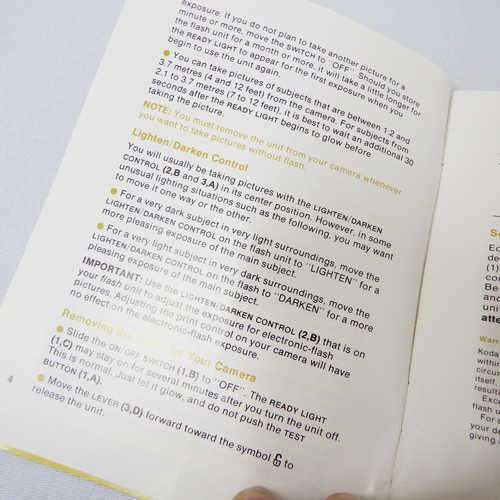 exposure. If you do not plan to take another picture for a
minute or more, move the SWITCH to "OFF". Should you store
the flash unit for a month or more, it will take a little longer for
the READY LIGHT to appear for the first exposure when you
begin to use the unit again.
● You can take pictures of subjects that are between 1.2 and
3.7 metres (4 and 12 feet) from the camera. For subjects from
2.1 to 3.7 metres (7 to 12 feet), it is best to wait an additional 30
seconds after the READY LIGHT begins to glow before
taking the picture.
NOTE: You must remove the unit from your camera whenever
you want to take pictures without flash.
Lighten/Darken Control
You will usually be taking pictures with the LIGHTEN/DARKEN
CONTROL (2,B and 3,A) in its center position. However, in some
unusual lighting situations such as the following, you may want
to move it one way or the other.
● For a very dark subject in very light surroundings, move the
LIGHTEN/DARKEN CONTROL on the flash unit to "LIGHTEN" for a
more pleasing exposure of the main subject.
● For a very light subject in very dark surroundings, move the
LIGHTEN/DARKEN CONTROL on the flash to "DARKEN" for a more
pleasing exposure of the main subject.
IMPORTANT: Use the LIGHTEN/DARKEN CONTROL (2,B) that is on
your flash unit to adjust the exposure for electronic-flash
pictures. Adjusting the print control on your camera will have
no effect on the electronic-flash exposure.
Removing Your Camera
● Slide the ON/OFF SWITCH (1,B) to "OFF". The READY LIGHT
(1,C) may stay on for several minutes after you turn the unit off.
This is normal. Just let it glow, and do not push the TEST
BUTTON (1,A).
● Move the LEVER (3,D) forward toward the symbol to
release the unit.
4
Ec
de
(1)
co
Be
an
uni
atte
Warr
Koda
within
circum
itself
result
Exce
flash u
For s
your de
giving a